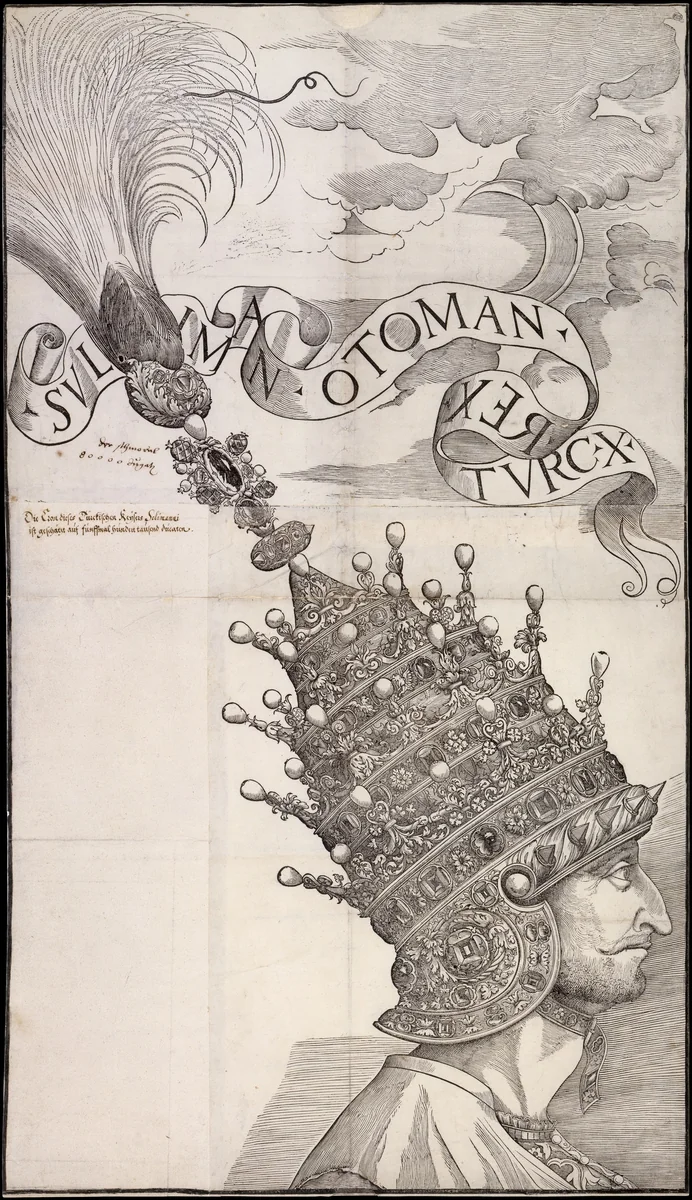 · SVL IMAN · OTOMAN ·
REX
TVRC·X·
der
80000
Die Cron dieses Türckischen Keysers Solimanni
ist geschätzt auf fünffmal hundert tausend ducaten.